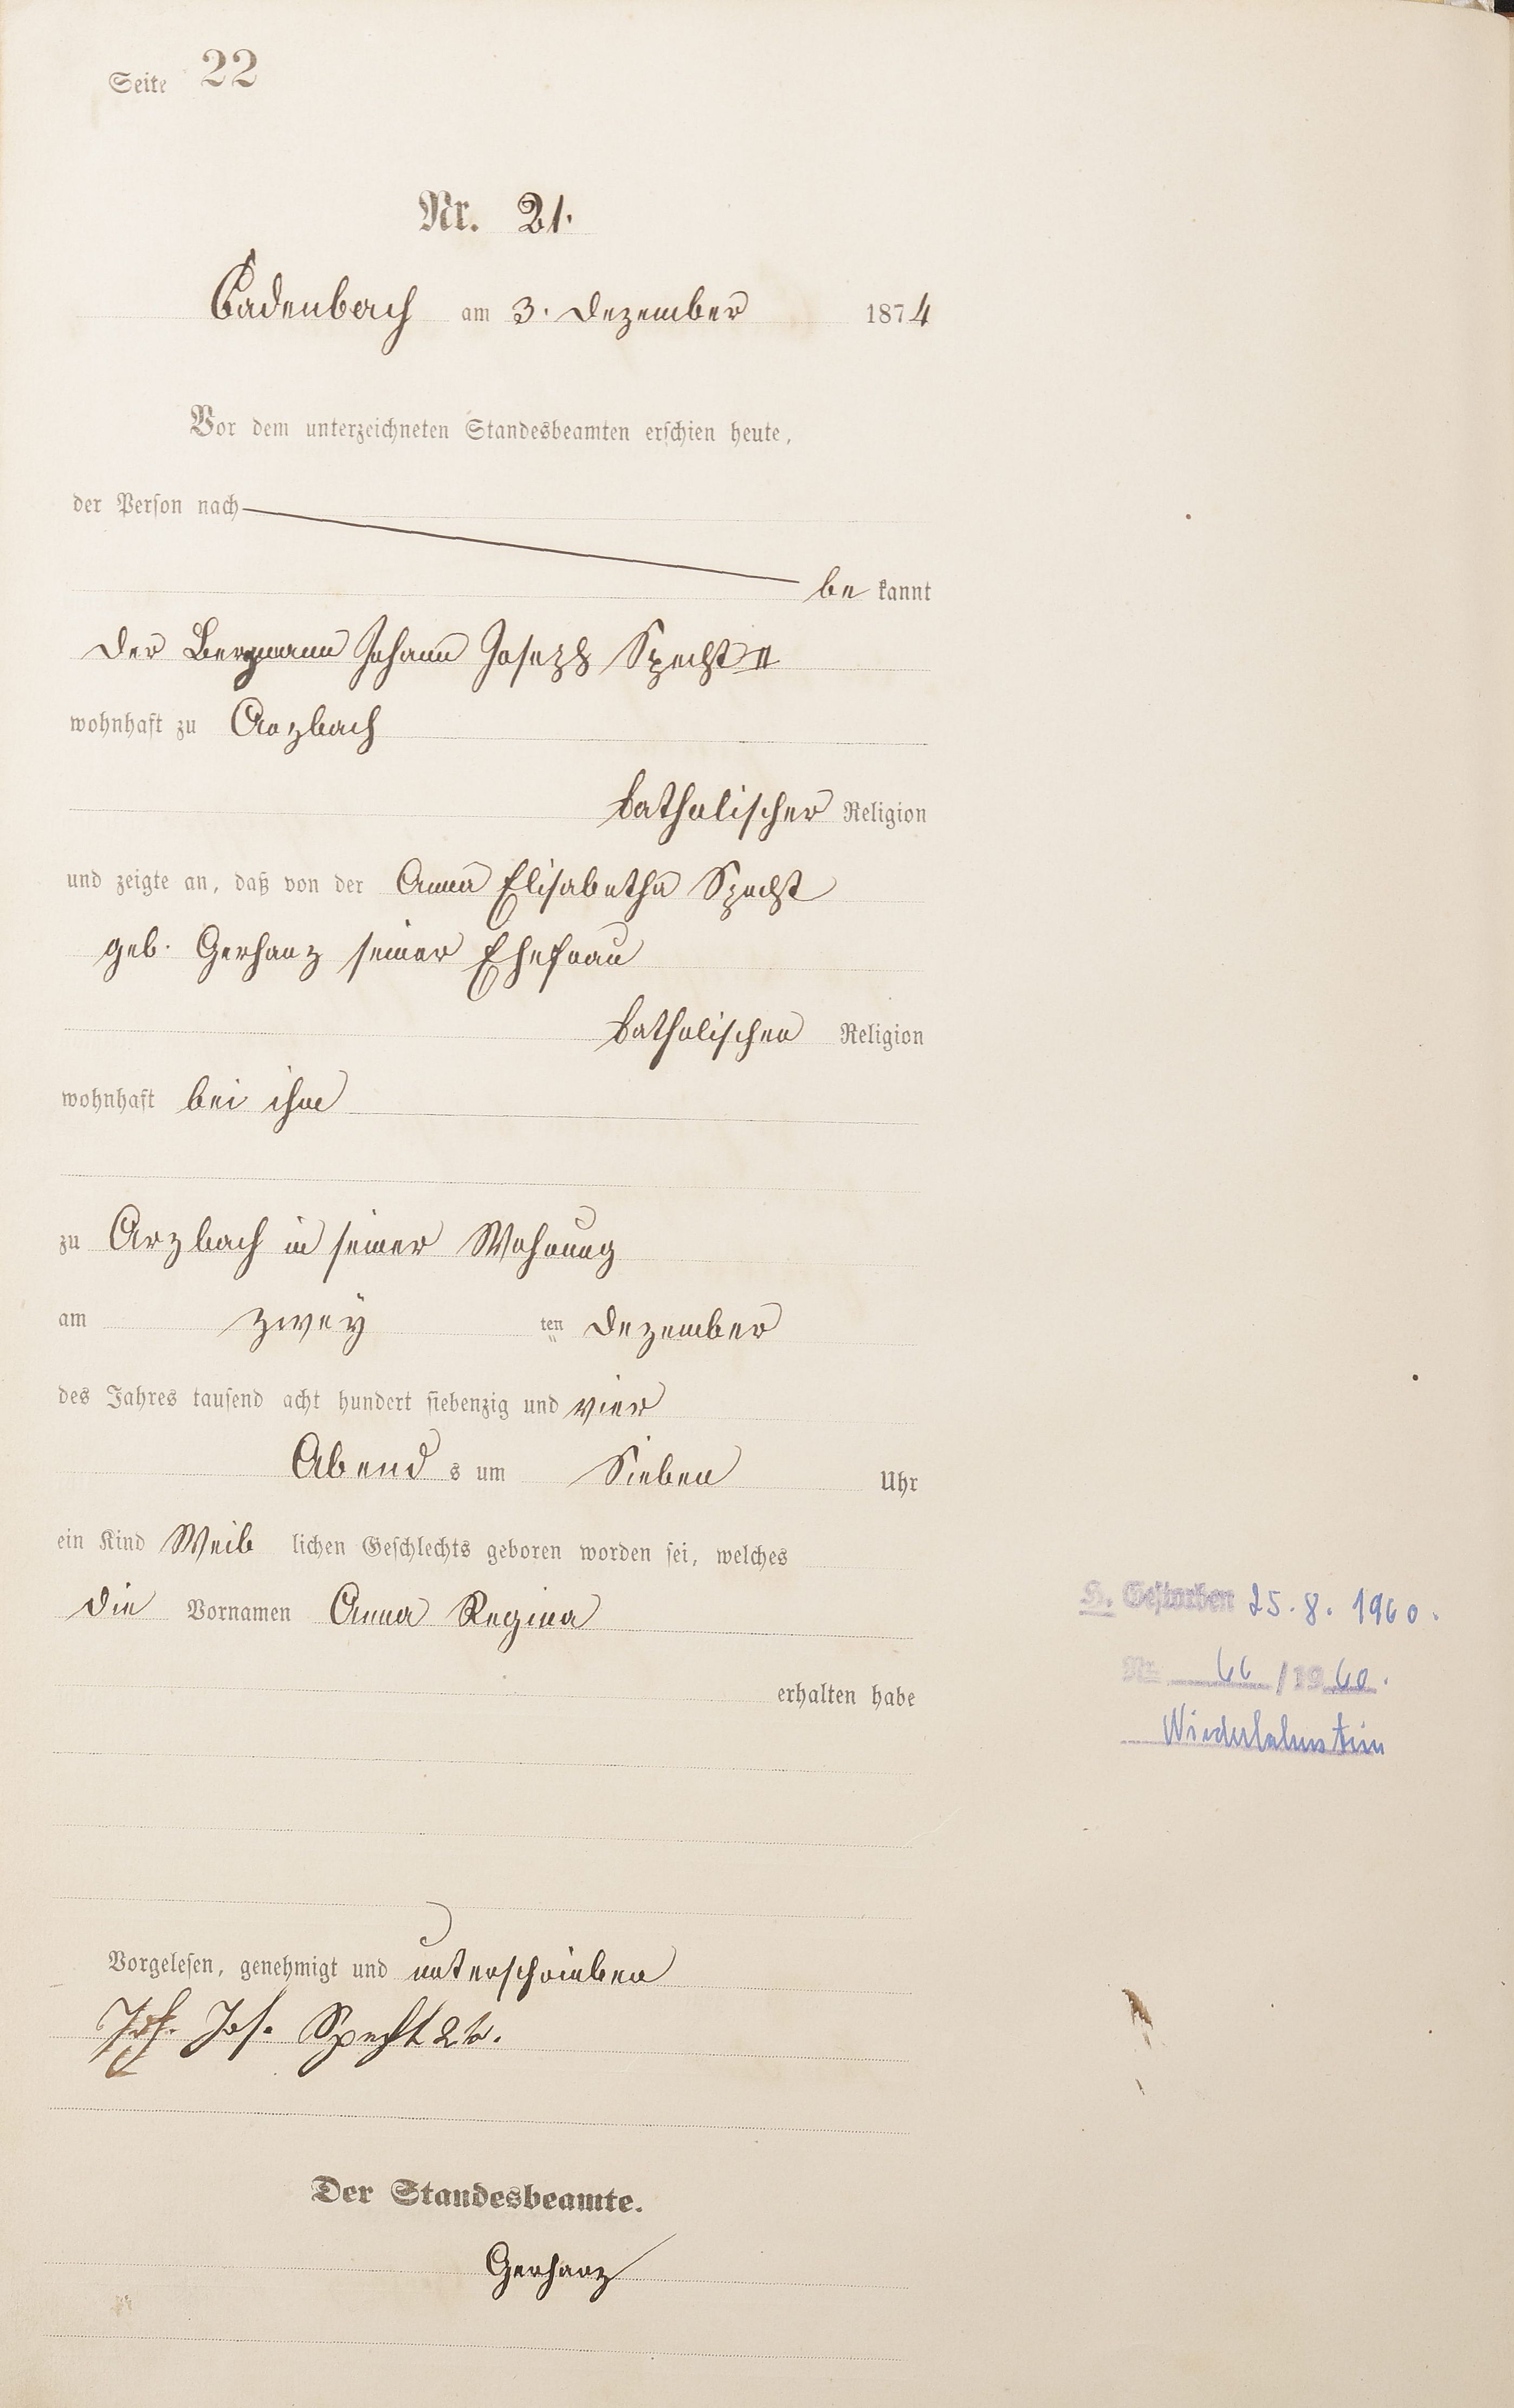 Seite 22
Nr. 21.
Cadenbach am 3. Dezember 1874
Vor dem unterzeichneten Standesbeamten erschien heute,
der Person nach
be kannt
der Bergmann Johann Joseph Specht II
wohnhaft zu Arzbach
katholischer Religion
und zeigte an, daß von der Anna Elisabetha Specht
geb. Gerharz seiner Ehefrau
katholischen Religion
wohnhaft bei ihm
zu Arzbach in seiner Wohnung
am zwey ten Dezember
des Jahres tausend acht hundert siebenzig und vier
Abend s um Sieben Uhr
ein Kind Weib lichen Geschlechts geboren worden sei, welches
die Vornamen Anna Regina
erhalten habe
H. Gestorben 25.8.1960.
Nr. 66/1960.
Niederlahnstein
Vorgelesen, genehmigt und unterschrieben
Joh. Jos. Specht 2tr.
Der Standesbeamte.
Gerharz